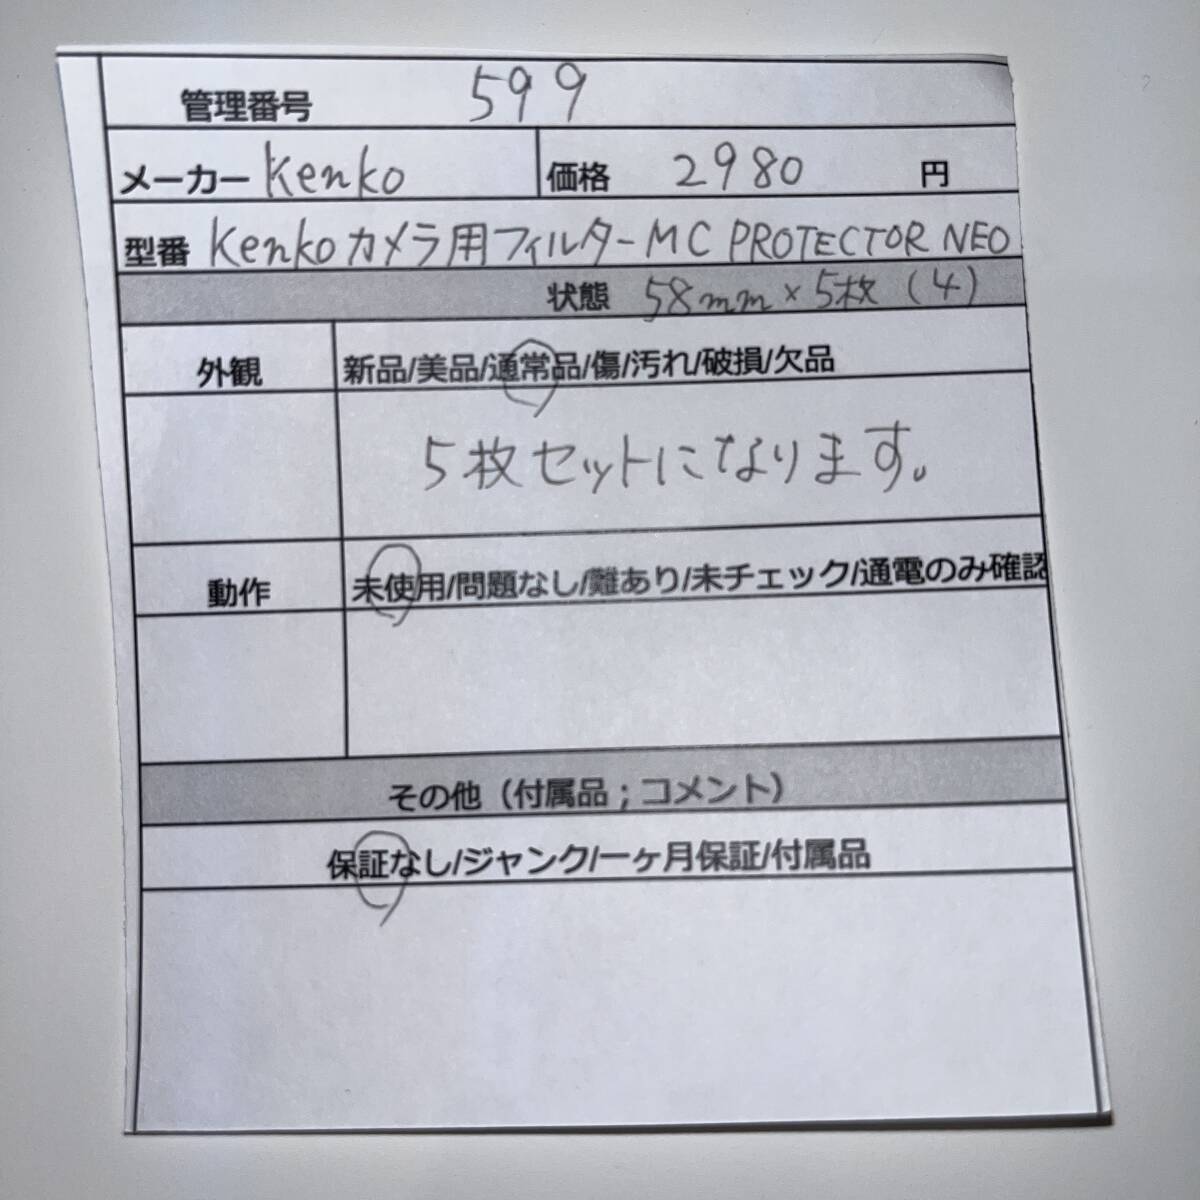 管理番号 599
メーカー Kenko 価格 2980 円
型番 Kenko カメラ用フィルター MC PROTECTOR NEO
状態 58mm×5枚(4)
外観 新品/美品/通常品/傷/汚れ/破損/欠品
5枚セットになります。
動作 未使用/問題なし/難あり/未チェック/通電のみ確認
その他（付属品；コメント）
保証なし/ジャンク/一ヶ月保証/付属品